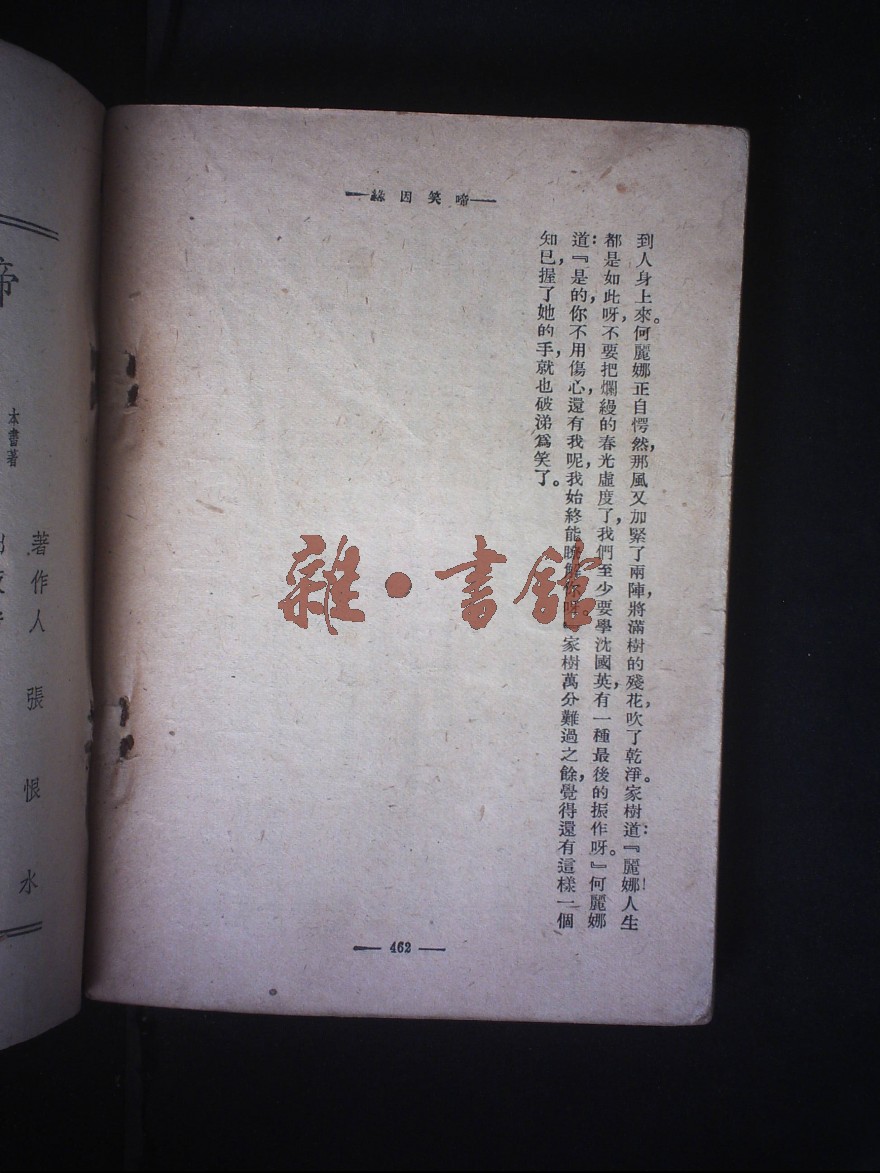 啼笑因緣
到人身上來。何麗娜正自愕然，那風又加緊了兩陣，將滿樹的殘花，吹了乾淨。家樹道：『麗娜！人生
都是如此呀，不要把爛縵的春光虛度了，我們至少要學沈國英，有一種最後的振作呀。』何麗娜
道：『是的，你不用傷心，還有我呢，我始終能瞭解你呀。』家樹萬分難過之餘，覺得還有這樣一個
知已，握了她的手，就也破涕爲笑了。
— 462 —
雜·書館
本書著
著作人 張恨水